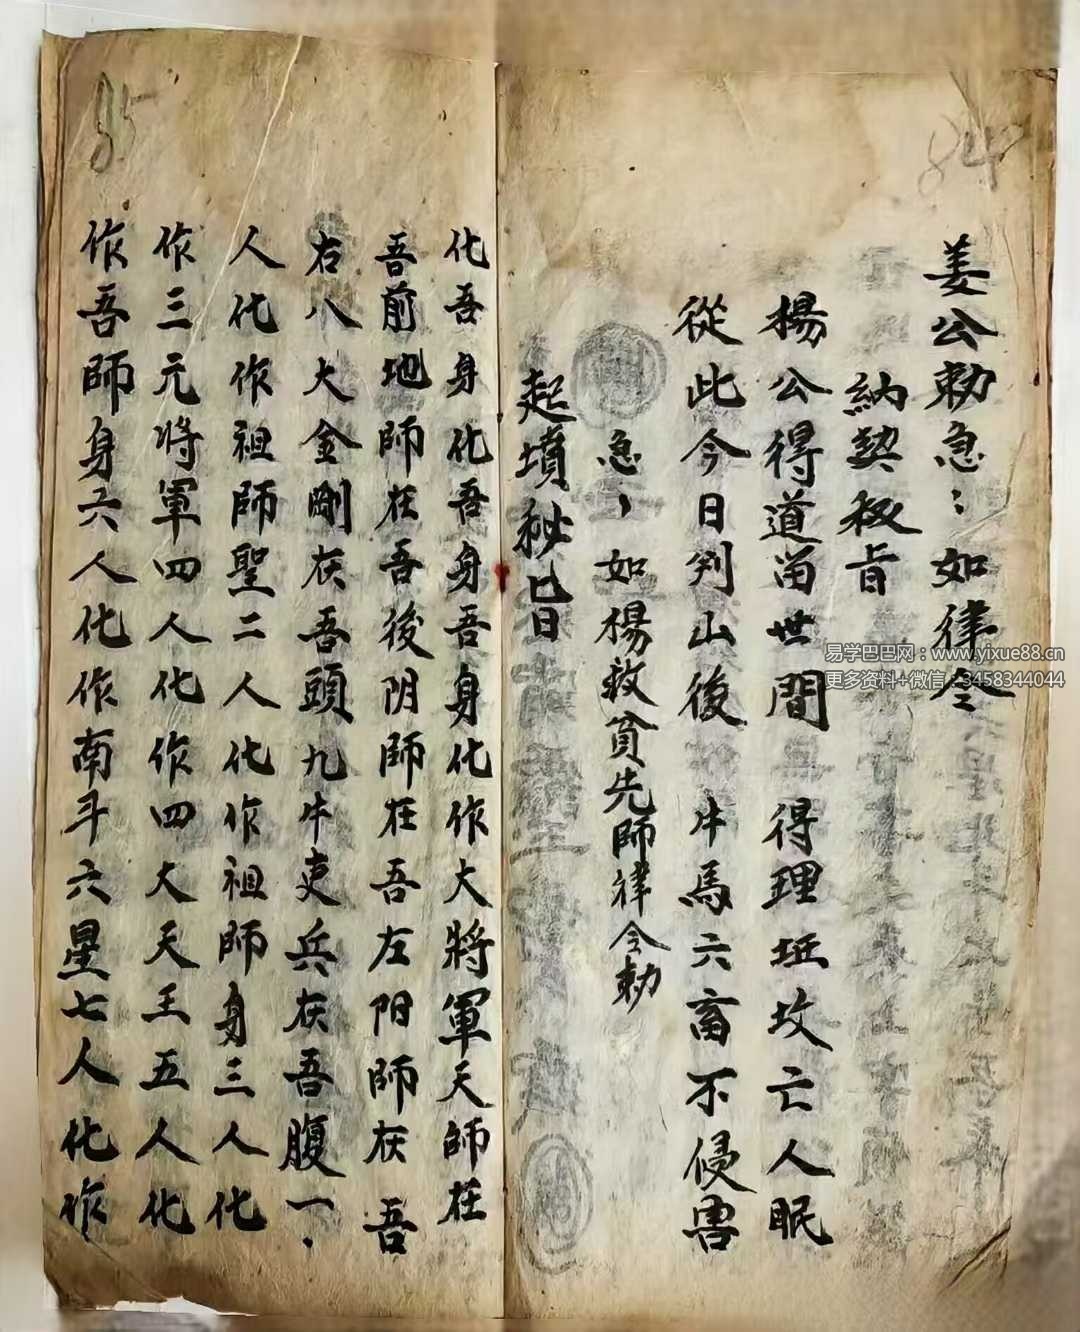 84
姜公勅急〻如律令
納契秘旨
楊公得道畄世間 得理坵坟亡人眠
從此今日判山後 牛馬六畜不侵害
急〻如楊救貧先師律令勅
起墳秘旨
85
化吾身化吾身吾身化作大將軍天師在
吾前地師在吾後阴師在吾左阳師在吾
右八大金剛在吾頭九牛吏兵在吾腹一〻
人化作祖師聖二人化作祖師身三人化
作三元將軍四人化作四大天王五人化
作吾師身六人化作南斗六星七人化作
易学巴巴网：www.yixue88.cn
更多资料+微信：3458344044